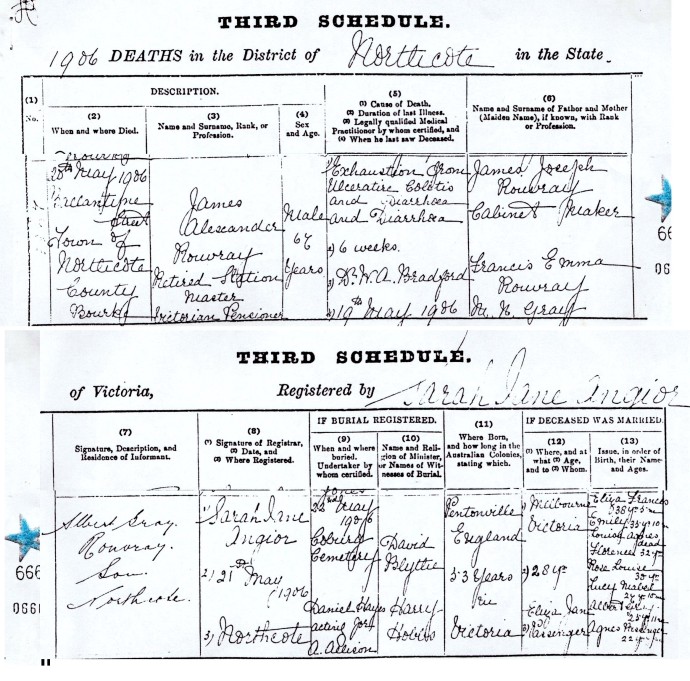 THIRD SCHEDULE.
1906 DEATHS in the District of Northcote in the State
DESCRIPTION.
(1)
No.
(2)
When and where Died.
(3)
Name and Surname, Rank, or
Profession.
(4)
Sex
and Age.
(5)
(1) Cause of Death,
(2) Duration of last Illness.
(3) Legally qualified Medical
Practitioner by whom certified, and
(4) When he last saw Deceased.
(6)
Name and Surname of Father and Mother
(Maiden Name), if known, with Rank
or Profession.
May 1906
Ballantine
Street
Town of
Northcote
County
Bourke
James
Alexander
Rouvray
Retired Station
Master
Victorian Pensioner
Male
67
Years
Exhaustion from
Ulcerative Colitis
and Diarrhœa
and Diarrhœa
2) 6 weeks.
3) Dr. W. A. Bradford
4) 19th May 1906
James Joseph
Rouvray
Cabinet Maker
Francis Emma
Rouvray
M. N. Gray
66
066
THIRD SCHEDULE.
of Victoria, Registered by Sarah Jane Angior
(7)
Signature, Description, and
Residence of Informant.
(8)
(1) Signature of Registrar,
(2) Date, and
(3) Where Registered.
IF BURIAL REGISTERED.
(9)
When and where
buried.
Undertaker by
whom certified.
(10)
Name and Reli-
gion of Minister,
or Names of Wit-
nesses of Burial.
(11)
Where Born,
and how long in the
Australian Colonies,
stating which.
IF DECEASED WAS MARRIED.
(12)
(1) Where, and at
what (2) Age,
and to (3) Whom.
(13)
Issue, in order of
Birth, their Names
and Ages.
Albert Gray
Rouvray.
Son.
Northcote.
1) Sarah Jane
Angior
2) 21st May
1906
3) Northcote
22nd May
1906
Coburg
Cemetery
Daniel Hayes
acting for
A. Allison
David
Blythe
Harry
Hobbs
Pentonville
England
53 Years
in
Victoria
1) Melbourne
Victoria
2) 28 yrs
3) Eliza Jane
Passenger
Eliza Frances
38 yr
Emily 35 yr
Louisa Agnes
dead
Florence 32 yr
Rose Louise
30 yr
Lucy Mabel
Albert Gray
25 yr
Agnes
22 yr
666
0661